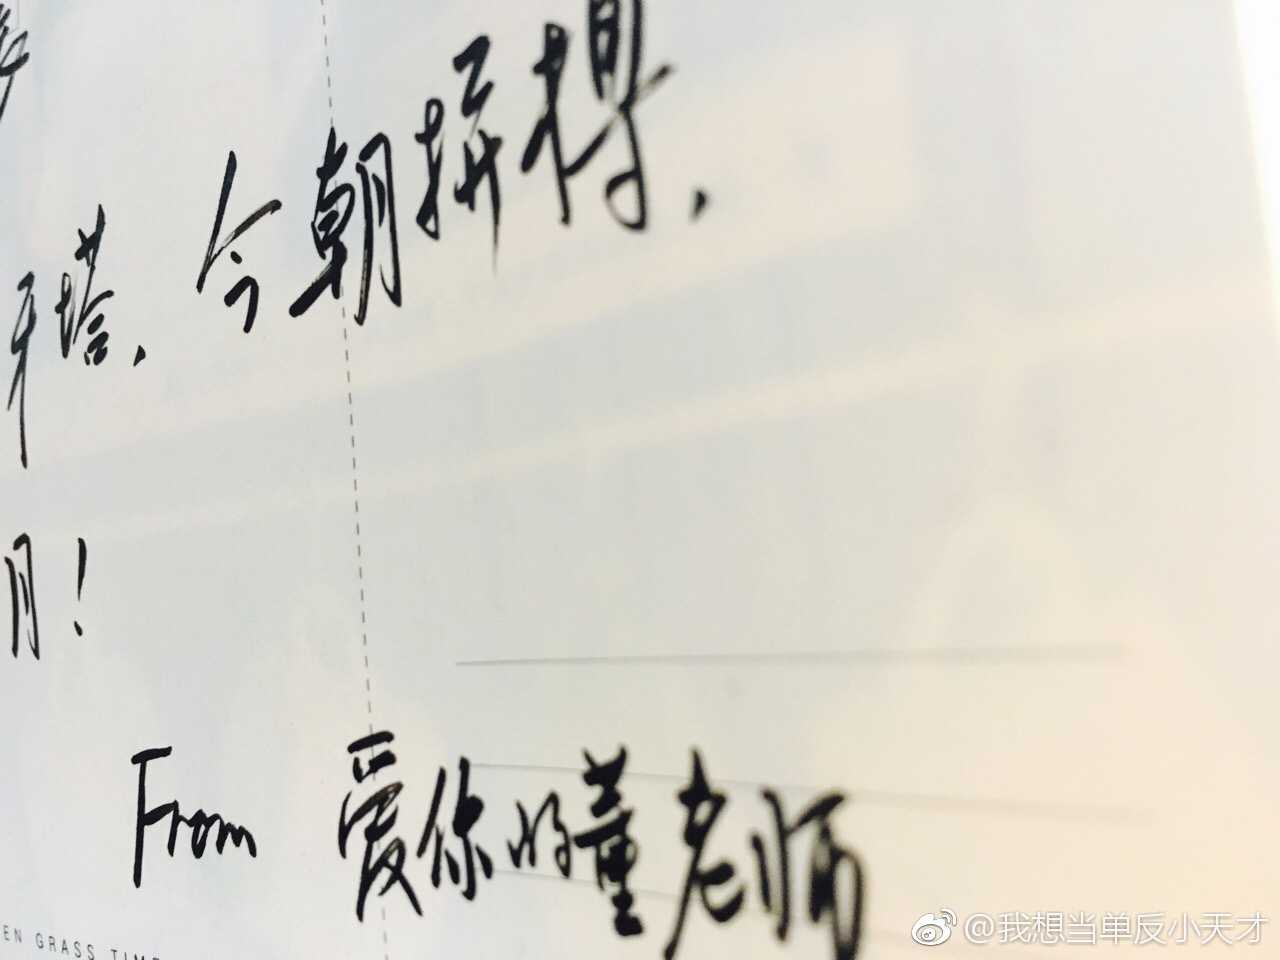 塔，今朝拼得，
月！
From 爱你的董老师
EN GRASS TIME
@我想当单反小天才